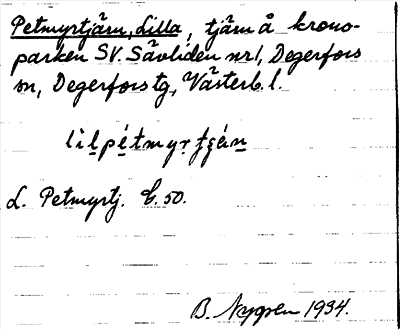 Petmyrtjärn, Lilla, tjärn å krono-
parken SV. Sävliden nr 1, Degerfors
sn, Degerfors tg, Västerb. l.
lìlpétmyrtjǽn
L. Petmyrtj. E. 50.
B. Nygren 1934.